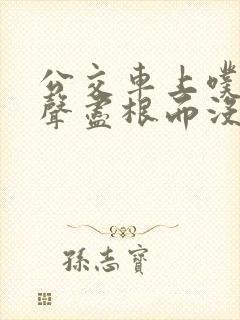 公交車上噗
聲盡根而沒
孫志寶